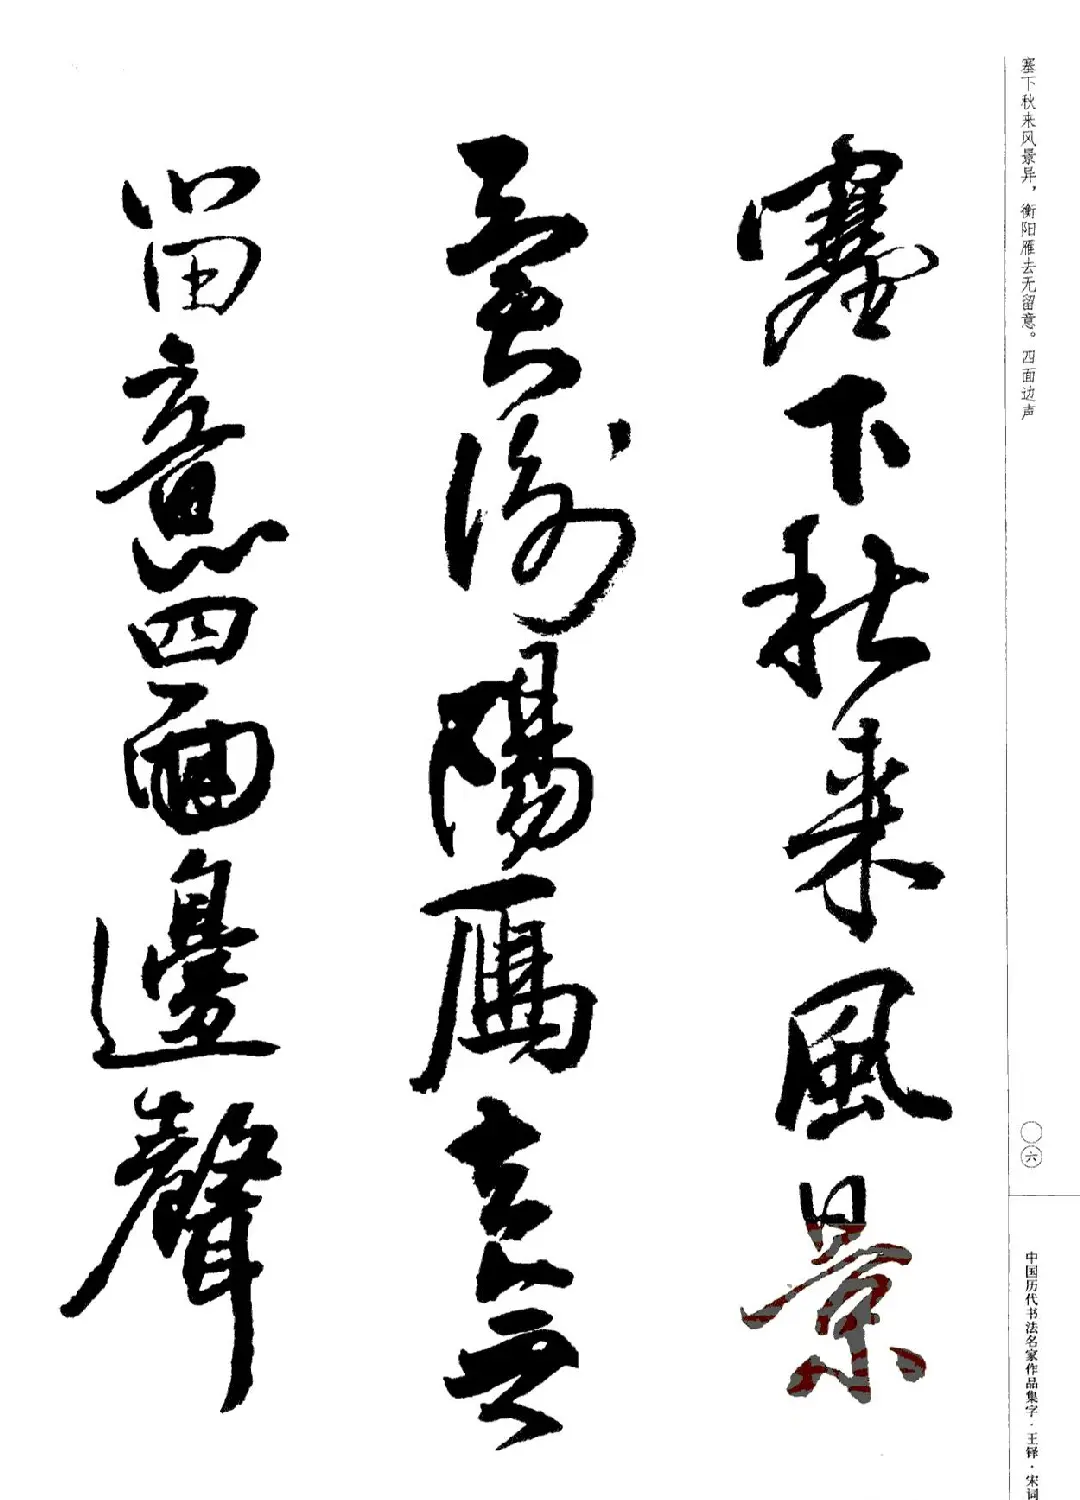 塞下秋来風景
異衡陽雁去無
留意四面邊聲
塞下秋来风景异，衡阳雁去无留意。四面边声
〇六
中国历代书法名家作品集字·王铎·宋词